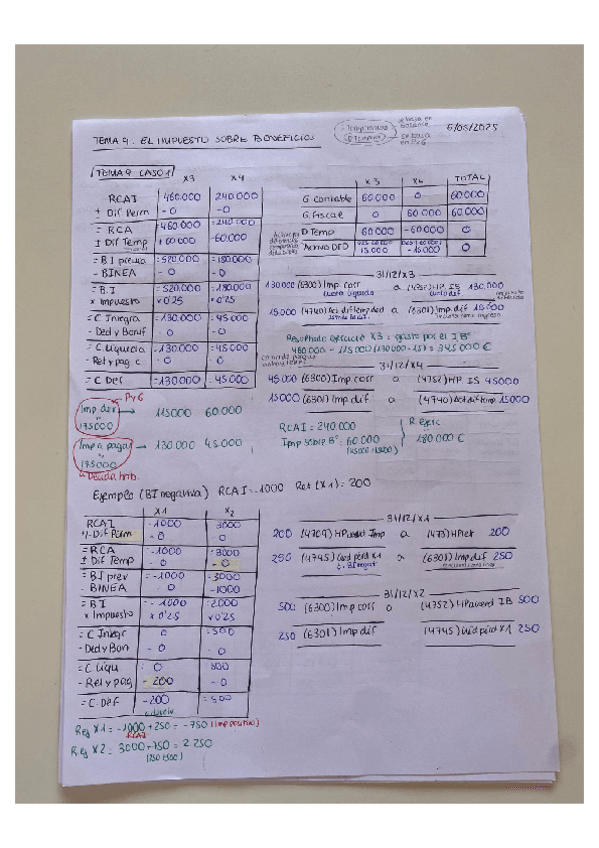 TEMA 9: EL IMPUESTO SOBRE BENEFICIOS
6/03/2025
TEMA 9 CASO 1
X3 X4
RCAI 460.000 240.000
± Dif Perm - 0 - 0
= RCA = 460.000 = 240.000
± Dif Temp + 60.000 - 60.000
= BI previa = 520.000 = 180.000
- BINEA - 0 - 0
= B.I = 520.000 = 180.000
x Impuesto x 0'25 x 0'25
= C Integra = 130.000 = 45.000
- Ded y Bonif - 0 - 0
= C Liquida = 130.000 = 45.000
- Ret y pag c - 0 - 0
= C Def = 130.000 = 45.000
X3 X4 TOTAL
G. contable 60.000 0 60.000
G. fiscal 0 60.000 60.000
D Temp 60.000 -60.000 0
15.000 -15.000 0
31/12/X3
130.000 (6300) Imp corr a (4752) HP IS 130.000
15.000 (4740) Act dif temp ded a (6301) Imp dif 15000
Resultado ejercicio X3 = gasto por el IBº
460.000 - 115.000 (130.000-15) = 345.000 €
31/12/X4
45.000 (6300) Imp corr a (4752) HP IS 45000
15000 (6301) Imp dif a (4740) Act dif temp 15000
RCAI = 240.000
Imp sobre Bº: 60.000
R. ejerc
180.000 €
PyG
Imp dev → 115000 60.000
175000
Imp a pagar → 130.000 45.000
175.000
Deuda trib.
Ejemplo (BI negativa) RCAI = -1000 Ret (X1) = 200
X1 X2
RCAI - 1000 3000
+/- Dif Perm - 0 - 0
= RCA = -1000 = 3000
± Dif Temp - 0 - 0
= BI prev = -1000 = 3000
- BINEA - 0 -1000
= BI = -1000 = 2000
x Impuesto x 0'25 x 0'25
= C Integr 0 = 500
- Ded y Bon - 0 - 0
= C Liqu = 0 500
- Ret y pag - 200 - 0
= C Def -200 = 500
Rej X1 = -1000 + 250 = -750 (imp positivo)
RCAI
Rej X2 = 3000 - 750 = 2.250
(250+500)
31/12/X1
200 (4709) HP deud Imp a (473) HP ret 200
250 (4745) Cred pérd X1 a (6301) Imp dif 250
31/12/X2
500 (6300) Imp corr a (4752) HP acreed IB 500
250 (6301) Imp dif (4745) Cred pérd X1 250